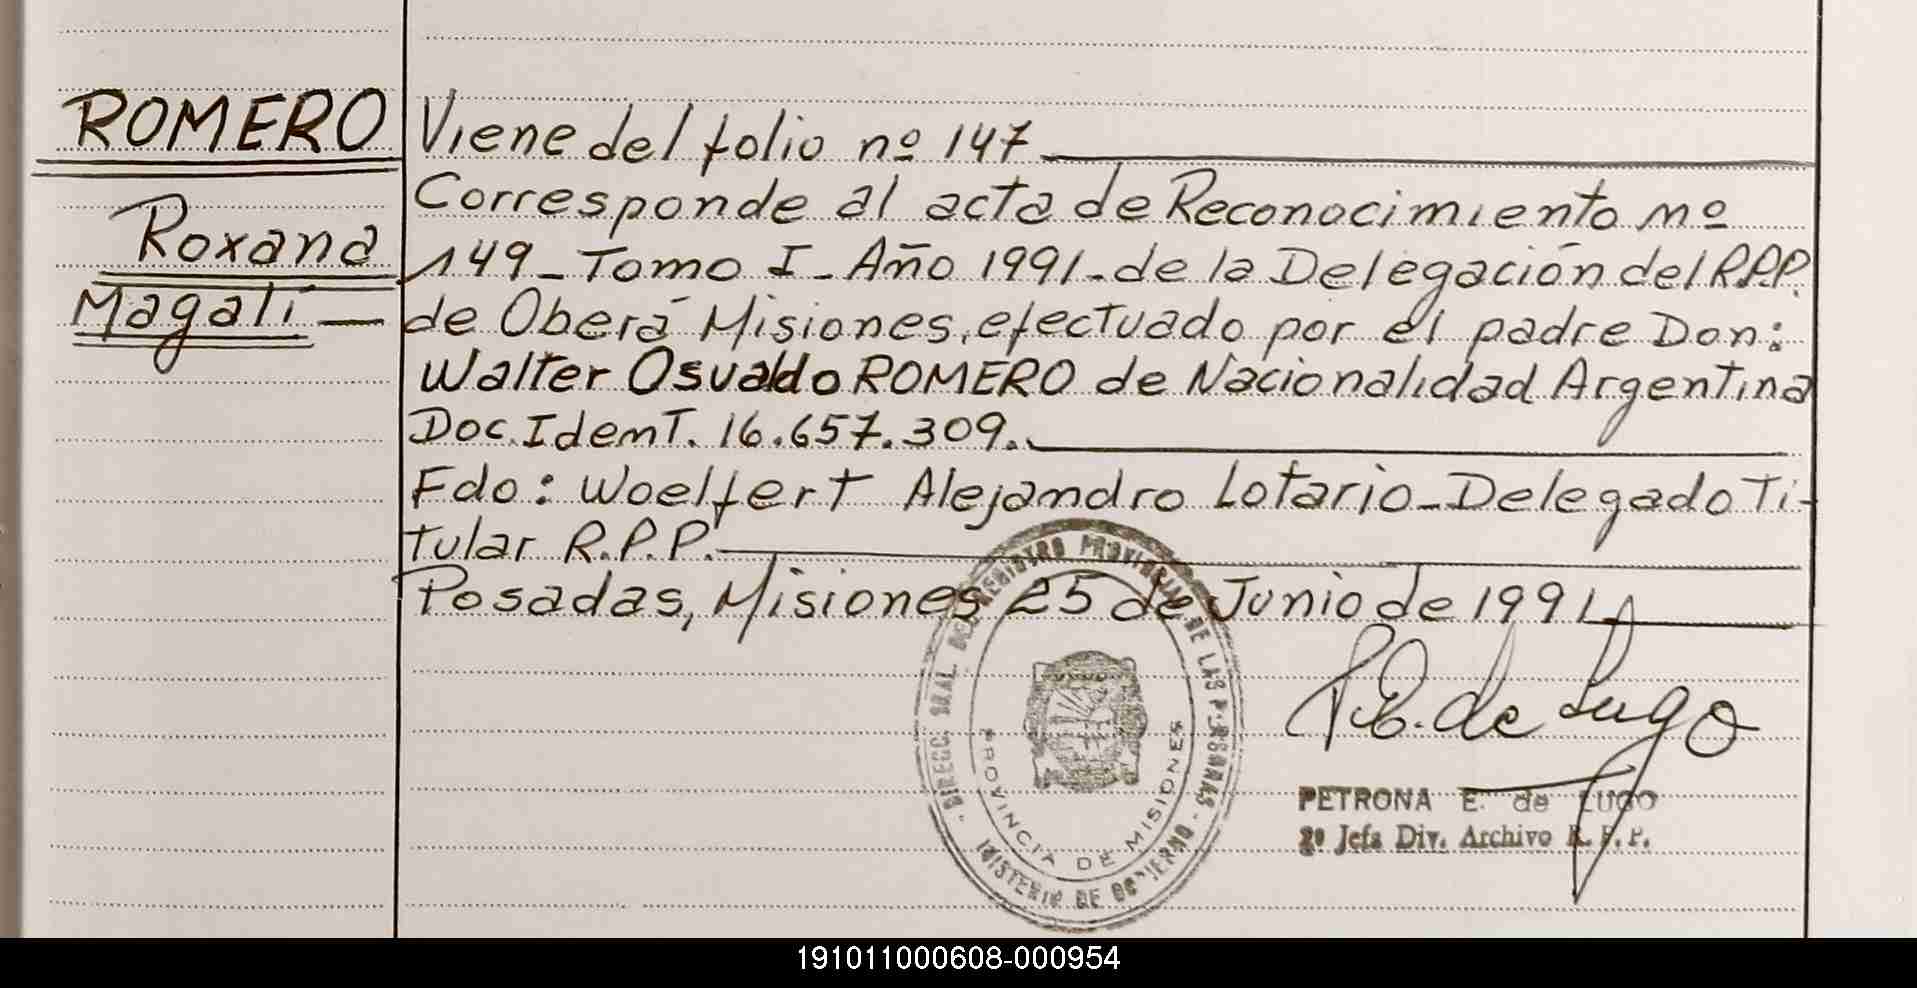 ROMERO
Roxana
Magalí —
Viene del folio nº 147
Corresponde al acta de Reconocimiento nº
149 - Tomo I - Año 1991 - de la Delegación del R.P.P.
de Oberá Misiones, efectuado por el padre Don:
Walter Osvaldo ROMERO de Nacionalidad Argentina
Doc. Ident. 16.657.309.
Fdo: Woelfert Alejandro Lotario - Delegado Ti-
tular R.P.P.
Posadas, Misiones 25 de Junio de 1991
DIRECC. GRAL. DEL REGISTRO PROVINCIAL DE LAS PERSONAS
PROVINCIA DE MISIONES
MINISTERIO DE GOBIERNO
P. E. de Lugo
PETRONA E. de LUGO
2º Jefa Div. Archivo R. P. P.
191011000608-000954